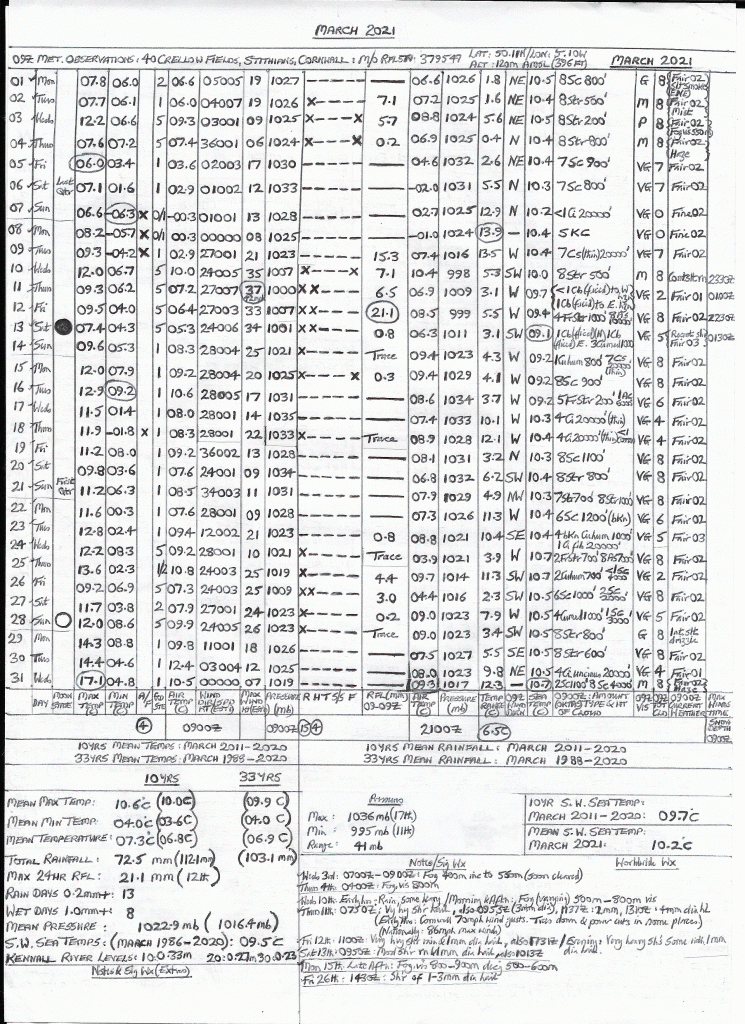 MARCH 2021
09Z MET. OBSERVATIONS: 40 CRELLOW FIELDS, STITHIANS, CORNWALL: M/O RFLSTN: 379547 LAT: 50.11N/LON: 5.10W ALT: 120m AMSL (396 Ft) MARCH 2021
01 Mon 07.8 06.0 2 06.6 05005 19 1027 ------ —— 06.6 1026 1.8 NE 10.5 8Sc 800' G 8 Fair 02
02 Tues 07.7 06.1 1 06.0 04007 19 1026 X----- 7.1 07.2 1025 1.6 NE 10.4 8Str 500' M 8 Fair 02 Mist
03 Wed 12.2 06.6 5 09.3 03001 09 1025 X----X 5.7 08.8 1024 5.6 NE 10.5 8Str 200' P 8 Fair 02
04 Thu 07.6 07.2 5 07.4 36001 06 1024 X----X 0.2 06.9 1025 0.4 N 10.4 8Str 800' M 8 Fair 02 Haze
05 Fri 06.0 03.4 1 03.6 02003 17 1030 ------ —— 04.6 1032 2.6 NE 10.4 7Sc 900' VG 7 Fair 02
06 Sat Last Qtr 07.1 01.6 1 02.9 01002 12 1033 ------ —— -02.0 1031 5.5 N 10.3 7Sc 800' VG 7 Fair 02
07 Sun 06.6 -06.3 X 0/1 -00.3 01001 13 1028 ------ —— 02.7 1025 12.9 N 10.2 <1Ci 20000' VG 0 Fine 02
08 Mon 08.2 -05.7 X 0/1 00.3 00000 08 1025 ------ —— -01.0 1024 13.9 - 10.4 SKC VG 0 Fine 02
09 Tues 09.3 -04.2 X 1 02.9 27001 21 1023 ------ 15.3 07.4 1016 13.5 W 10.4 7Cs(thin)20000' VG 7 Fair 02
10 Wed 12.0 06.7 5 10.0 24005 35 1007 X----X 7.1 10.4 998 5.3 SW 10.0 8Str 500' M 8 2230Z
11 Thu 09.3 06.2 5 07.2 27007 37 1000 X---XX 6.5 06.9 1009 3.1 W 09.7 VG 2 Fair 01 0100Z
12 Fri 09.5 04.0 5 06.4 27003 33 1007 X----- 21.1 08.5 999 5.5 W 09.4 VG 8 Fair 02 2230Z
13 Sat 07.4 04.3 5 05.3 24006 34 1001 X---XX 0.8 06.3 1011 3.1 SW 09.1 VG 5 Fair 03 0130Z
14 Sun 09.6 05.3 1 08.3 28004 25 1021 X----- Trace 09.4 1023 4.3 W 09.2 VG 8 Fair 02
15 Mon 12.0 07.9 1 09.2 28004 20 1025 X----X 0.3 09.4 1029 4.1 W 09.2 8Sc 900' VG 8 Fair 02
16 Tues 12.9 09.2 1 10.6 28005 17 1031 ------ —— 08.6 1034 3.7 W 09.2 VG 6 Fair 02
17 Wed 11.5 01.4 1 08.0 28001 14 1035 ------ —— 07.4 1033 10.1 W 10.3 4Ci 20000'(thin) VG 4 Fair 02
18 Thu 11.9 -01.8 X 1 08.3 28001 22 1033 X----- Trace 08.9 1028 12.1 W 10.4 VG 4 Fair 02
19 Fri 11.2 08.0 1 09.2 36002 13 1028 ------ —— 08.1 1031 3.2 N 10.3 8Sc 1100' VG 8 Fair 02
20 Sat 09.8 03.6 1 07.6 24001 09 1034 ------ —— 06.8 1032 6.2 SW 10.4 8Str 800' VG 8 Fair 02
21 Sun First Qtr 11.2 06.3 1 08.5 34003 11 1031 ------ —— 07.9 1029 4.9 NW 10.3 VG 8 Fair 02
22 Mon 11.6 00.3 1 07.6 28001 09 1028 ------ —— 07.3 1026 11.3 W 10.4 6Sc 1200'(bkn) VG 6 Fair 02
23 Tues 12.8 02.4 1 09.4 12002 21 1023 ------ 0.8 08.8 1021 10.4 SE 10.4 VG 5 Fair 03
24 Wed 12.2 08.3 5 09.2 28001 10 1021 X----- Trace 03.9 1021 3.9 W 10.7 VG 8 Fair 02
25 Thu 13.6 02.3 1/2 10.8 24003 25 1019 X----- 4.4 09.7 1014 11.3 SW 10.7 VG 2 Fair 02
26 Fri 09.2 06.9 5 07.3 24003 25 1009 X---XX 3.0 04.4 1016 2.3 SW 10.5 VG 8 Fair 02
27 Sat 11.7 03.8 2 07.9 27001 24 1023 X----- 0.2 09.0 1023 7.9 W 10.5 VG 5 Fair 02
28 Sun 12.0 08.6 5 09.9 24005 26 1023 X----- Trace 09.0 1023 3.4 SW 10.5 8Str 800' G 8
29 Mon 14.3 08.8 1 09.8 11001 18 1026 ------ —— 07.5 1027 5.5 SE 10.5 8Str 600' VG 8 Fair 02
30 Tues 14.4 04.6 1 12.4 03004 12 1025 ------ —— 08.0 1023 9.8 NE 10.5 VG 4 Fair 01
31 Wed 17.1 04.8 1 10.5 00000 07 1019 ------ —— 09.3 1017 12.3 — 10.7 2Sc 1100' 8Sc 4000' M 8 Fair 02 Haze
DAY MOON STATE MAX TEMP (C) MIN TEMP (C) A/F GD STE AIR TEMP (C) WIND DIR/SPD KT(EST) MAX WIND KT(EST) PRESSURE (mb) R H T S/S F RFL(mm) 09-09Z AIR TEMP (C) PRESSURE (mb) TEMP RANGE (C) 09Z WIND DIRN SEA TEMP (C) 0900Z: AMOUNT (OKTAS) TYPE & HT OF CLOUD 09Z VIS 09Z TOT CLD CURRENT WEATHER MAX WIND TIME
4 0900Z 0900Z 15 4 2100Z 6.5C SNOW DEPTH 0900Z
10YRS MEAN TEMPS: MARCH 2011-2020 10YRS MEAN RAINFALL: MARCH 2011-2020
33YRS MEAN TEMPS: MARCH 1988-2020 33YRS MEAN RAINFALL: MARCH 1988-2020
10YRS 33YRS
MEAN MAX TEMP: 10.6°C (10.0C) (09.9 C)
MEAN MIN TEMP: 04.0°C (03.6C) (04.0 C)
MEAN TEMPERATURE: 07.3°C (06.8C) (06.9 C)
TOTAL RAINFALL: 72.5 mm (112.1mm) (103.1mm)
MAX 24HR RFL: 21.1 mm (12th)
RAIN DAYS 0.2mm+: 13
WET DAYS 1.0mm+: 8
MEAN PRESSURE: 1022.9 mb (1016.4 mb)
S.W. SEA TEMPS: (MARCH 1986-2020): 09.5°C
KENNALL RIVER LEVELS: 10:0.33m 20:0.27m 30:0.23
Notes & Sig Wx (Extras)
Pressure
Max: 1036 mb (17th)
Min: 995 mb (11th)
Range: 41 mb
10YR S.W. SEA TEMP:
MARCH 2011-2020: 09.7°C
MEAN S.W. SEA TEMP:
MARCH 2021: 10.2°C
Notes/Sig Wx Worldwide Wx
Weds 3rd: 0700Z-0900Z: Fog 400m inc to 550m (soon cleared)
Thurs 4th: 0400Z: Fog vis 800m
Weds 10th: Early hrs: Rain, some heavy/Morning & Aftn: Fog (varying) 500m-800m vis
(Early Hrs: Cornwall 70mph wind gusts. Trees down & power cuts in some places)
(Nationally: 86mph max winds)
Mon 15th: Late Aftn: Fog vis 800-900m decr 500-600m
Fri 26th: 1430Z: Shr of 1-3mm dia hail